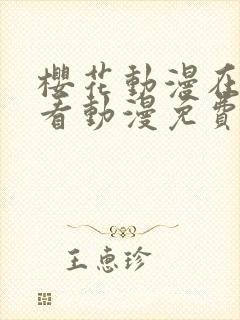 櫻花動漫在
看動漫免費
王惠珍